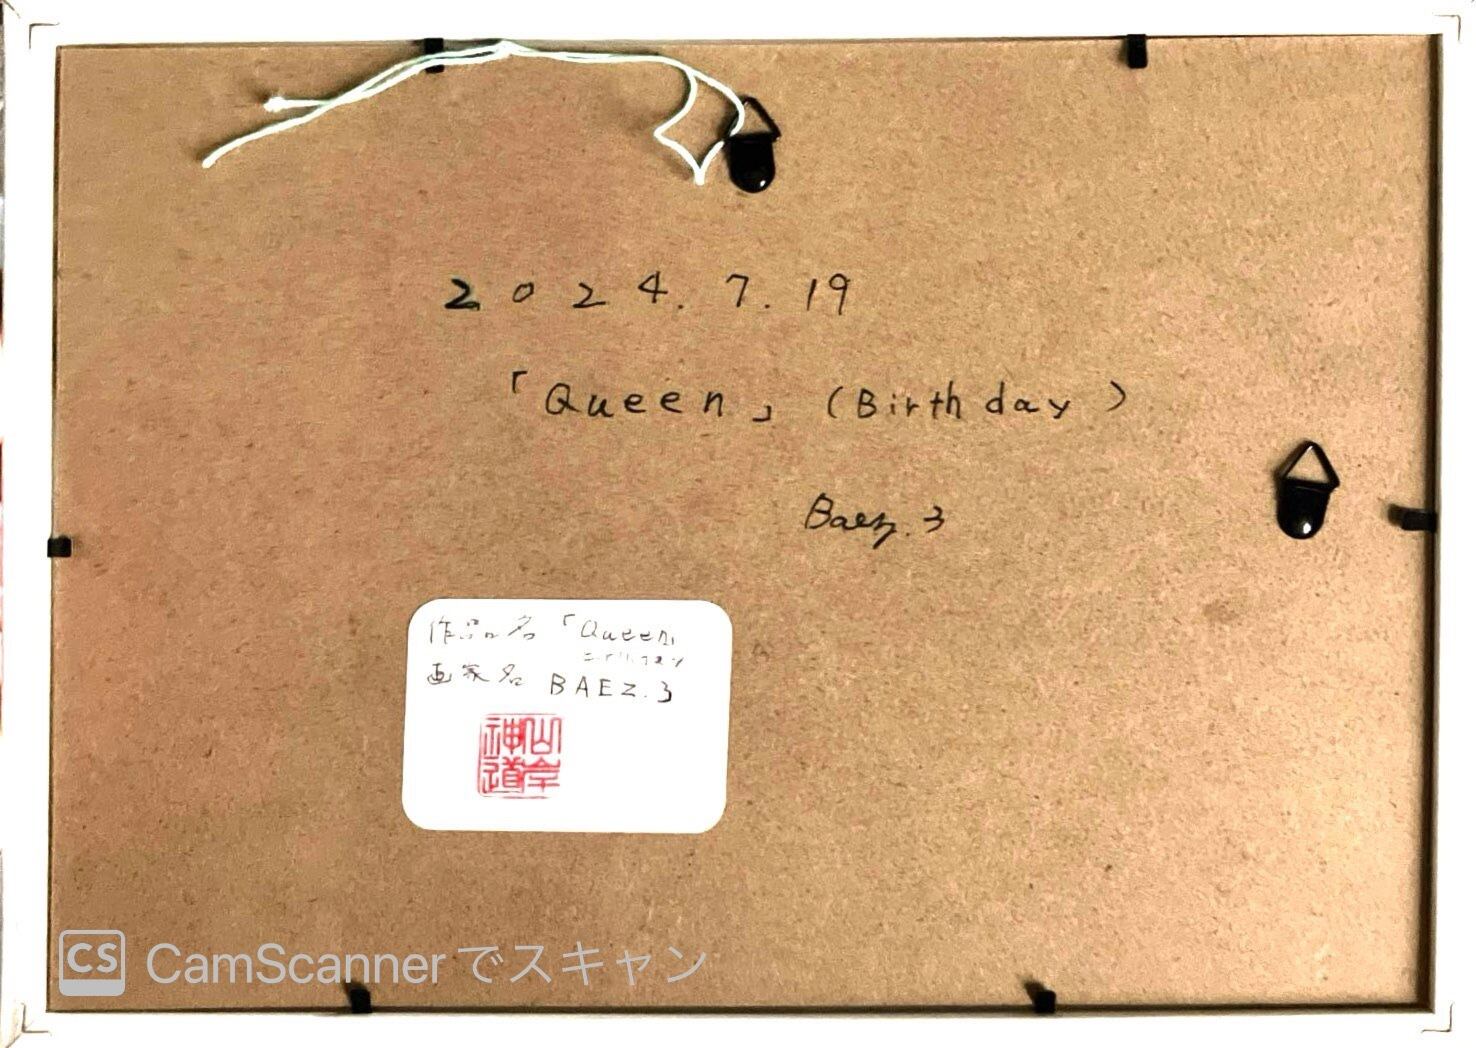 2024.7.19
「Queen」(Birthday)
Baez.3
作品名「Queen」
画家名 BAEZ.3
神道
CS CamScannerでスキャン